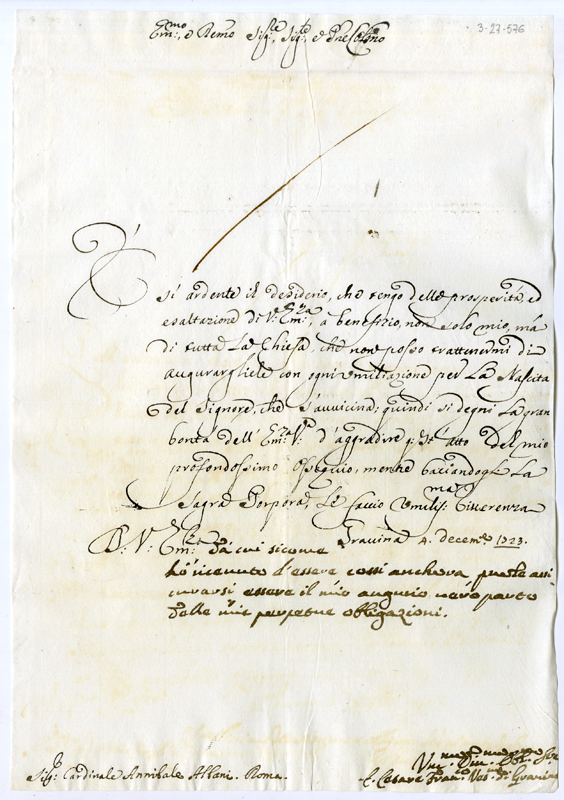 3-27-576
Em:mo, e Remo Sig:re, Sig:re e Pne Colmo
È
sì ardente il desiderio, che tengo delle prosperità, ed
esaltazione di V: Em:za, à benefizio, non solo mio, mà
di tutta la Chiesa, che non posso trattenermi di
augurargliele con ogni umiliazione per la Nascita
del Signore, che s'avvicina; quindi si degni la gran
bontà dell' Em:za V:ra d'aggradire q:sto atto del mio
profondissimo ossequio, mentre baciandogli la
Sagra Porpora, le faccio umiliss:ma riverenza
Gravina 4. decem:e 1723.
D: V: Em:za Da cui sicome
hò ricevuto d'essere cossi anchora, puole assi
curarsi essere il mio augurio vero parto
dalle mie perpetue obligazioni.
Um:mo Div:mo Obl:mo Ser
Sig:r Cardinale Annibale Albani. Roma.
F. Cesare Fran:co Ves:o di Gravina